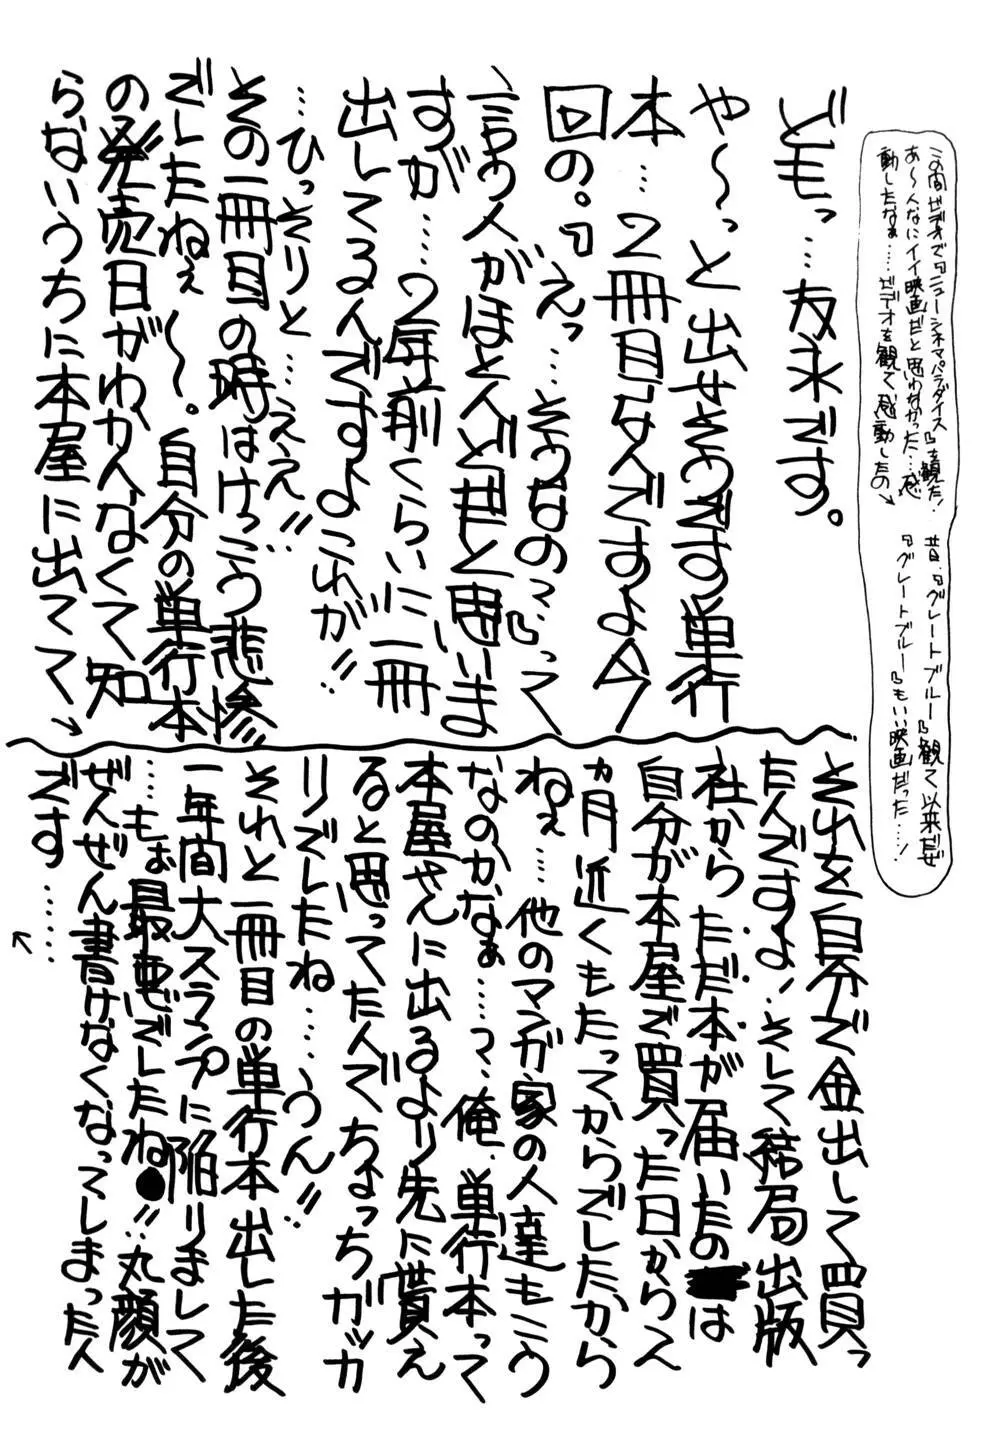 どもっ…友永です。
や〜っと出せそうです単行
本…2冊目なんですよ今
回の。『えっ……そうなの？』って
言う人がほとんどだと思いま
すが……2年前くらいに一冊
出してるんですよこれが!!
…ひっそりと……ええ!!
その一冊目の時はけっこう悲惨
でしたねぇ〜。自分の単行本
の発売日がわかんなくて知
らないうちに本屋に出てて→
それを自分で金出して買っ
たんですよ、そして結局出版
社からただ本が届いたのは
自分が本屋で買った日から一
ヵ月近くもたってからでしたから
ねぇ…他のマンガ家の人達もこう
なのかなぁ……？俺、単行本って
本屋さんに出るより先に貰え
ると思ってたんでちょっちガッカ
リでしたね……うん!!
それと一冊目の単行本出した後
一年間大スランプに陥りまして
…もぉ最悪でしたね!!丸顔が
ぜんぜん書けなくなってしまったん
です……→
この間ビデオで『ニューシネマパラダイス』を観た!
あ〜んなにイイ映画だと思わなかった…感
動したなぁ……ビデオを観て感動したの→
昔、『グレートブルー』観て以来だぜ
『グレートブルー』もいい映画だった……!